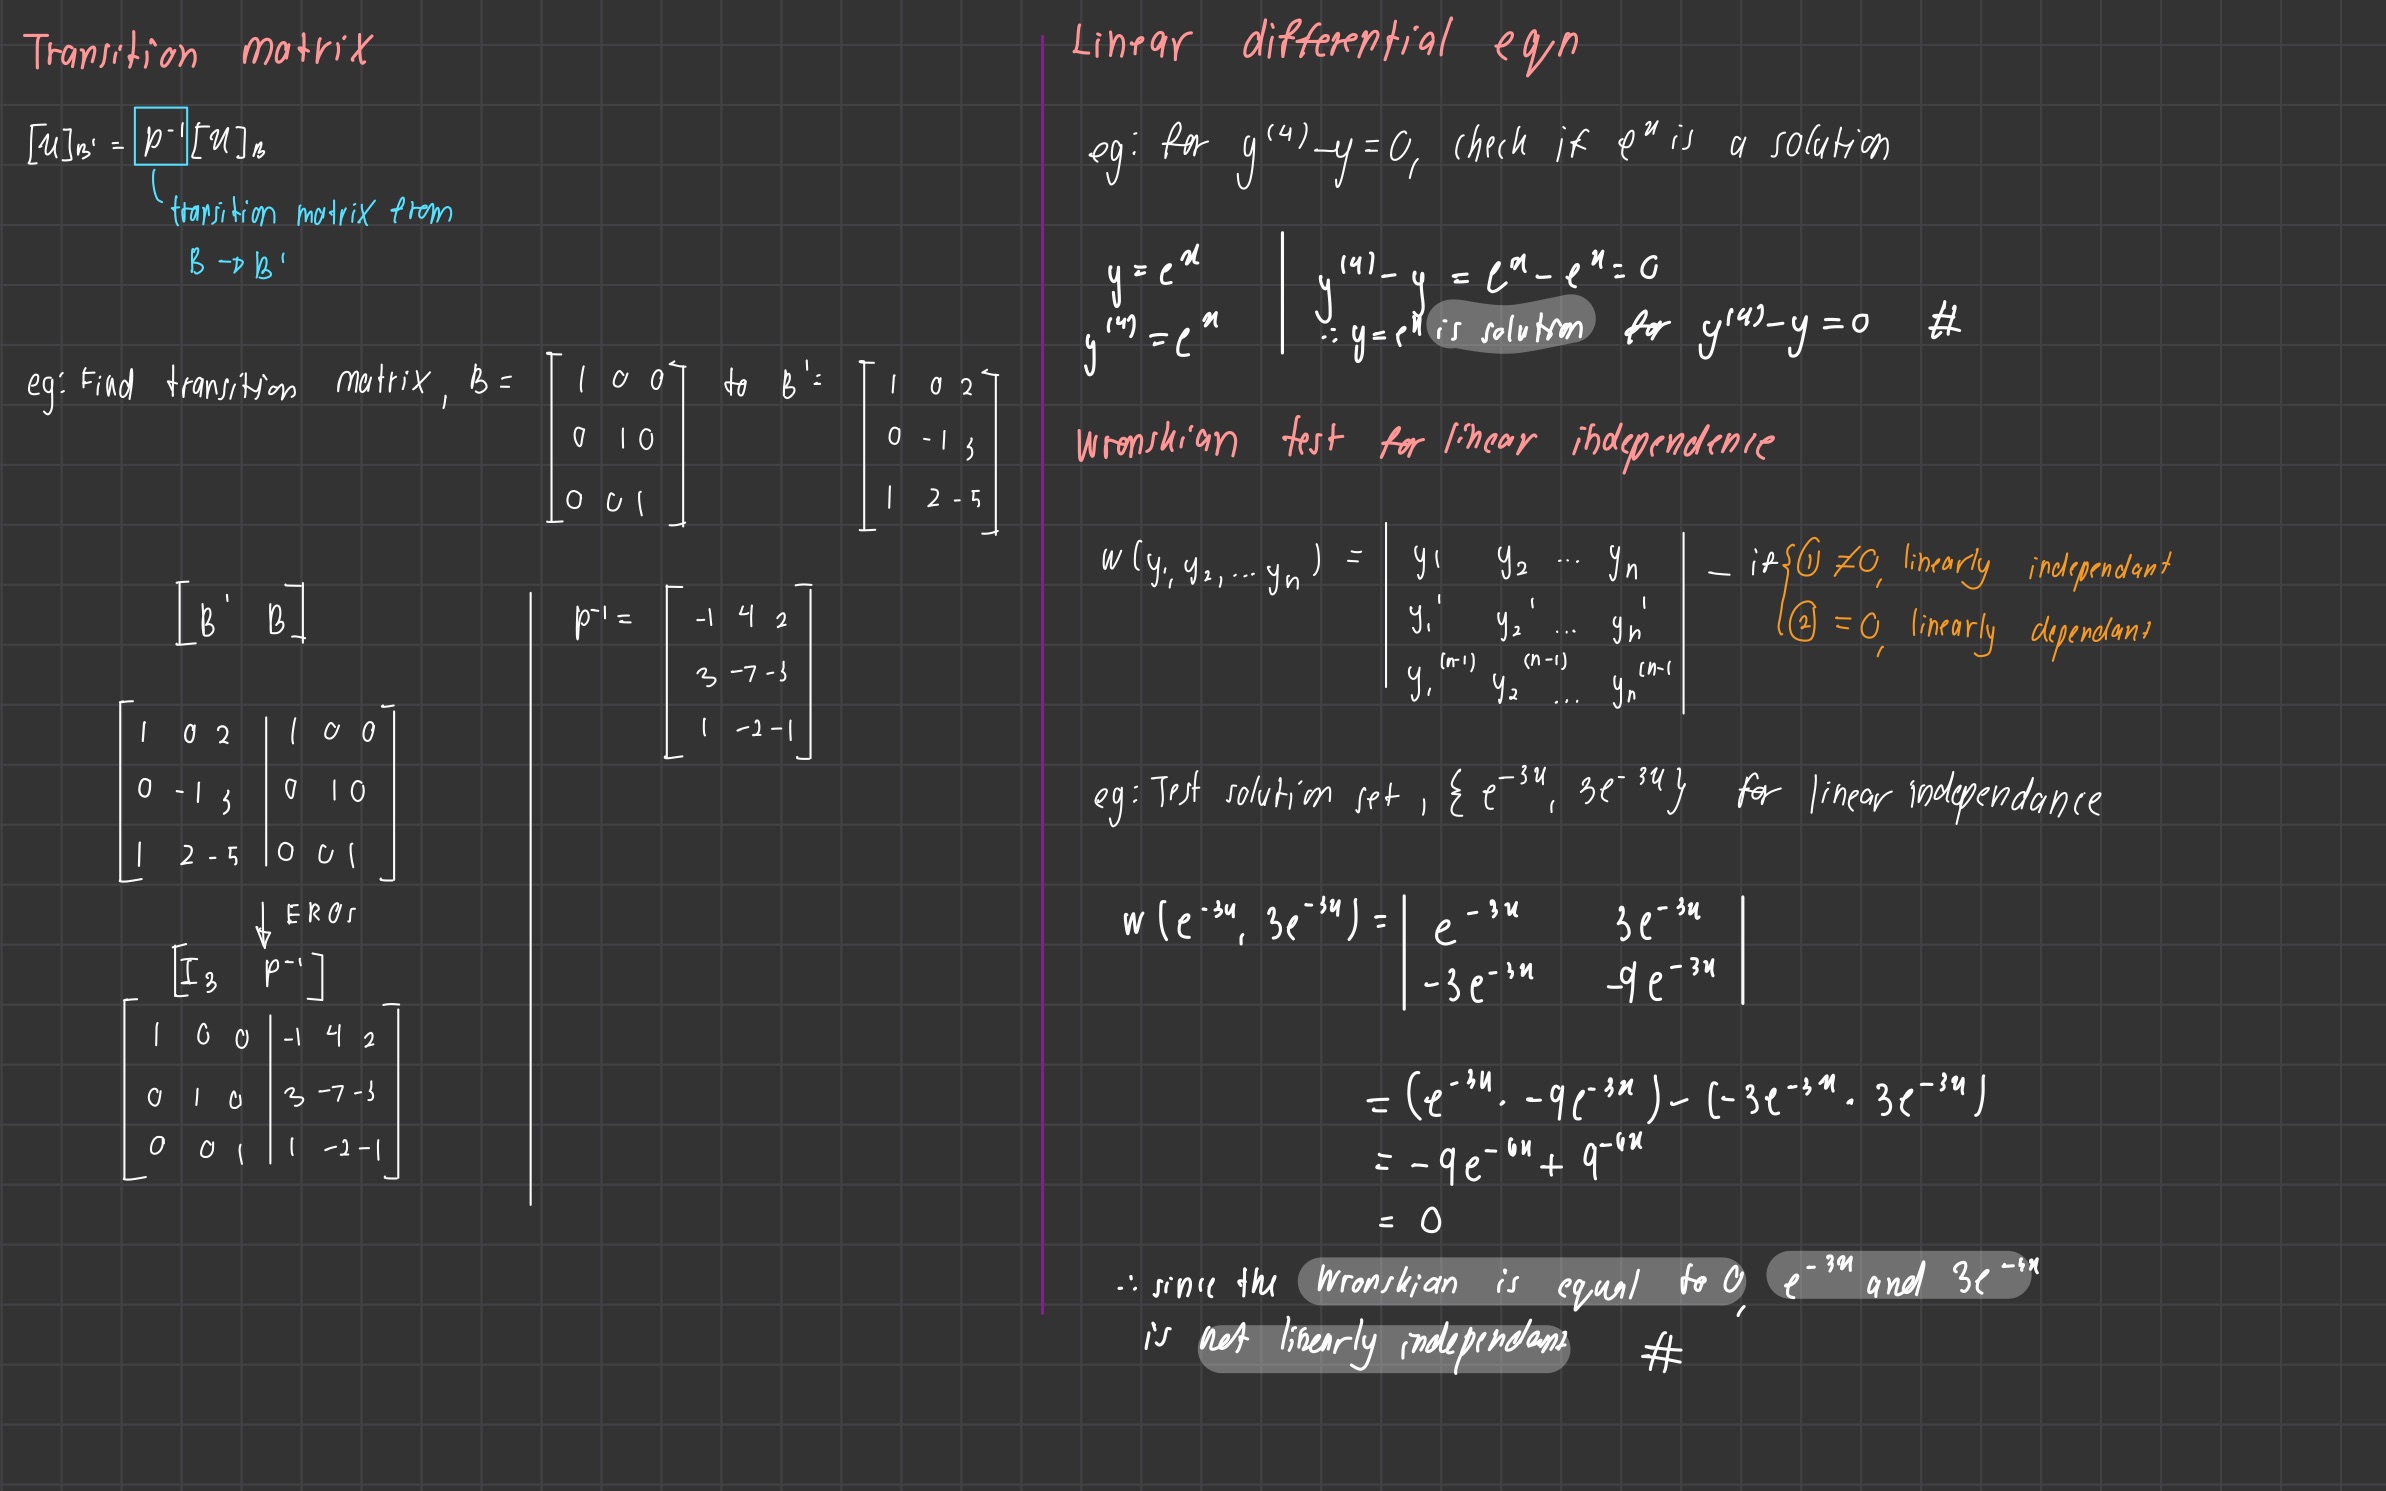 Transition matrix
[x]B' = P⁻¹ [x]B
transition matrix from
B → B'
eg: Find transition matrix, B = [1 0 0; 0 1 0; 0 0 1] to B' = [1 0 2; 0 -1 3; 1 2 -5]
[B' B]
[1 0 2 | 1 0 0
0 -1 3 | 0 1 0
1 2 -5 | 0 0 1]
↓ EROs
[I₃ P⁻¹]
[1 0 0 | -1 4 2
0 1 0 | 3 -7 -3
0 0 1 | 1 -2 -1]
P⁻¹ = [-1 4 2
3 -7 -3
1 -2 -1]
Linear differential eqn
eg: for y⁽⁴⁾ - y = 0, check if eˣ is a solution
y = eˣ
y⁽⁴⁾ = eˣ
y⁽⁴⁾ - y = eˣ - eˣ = 0
∴ y = eˣ is solution for y⁽⁴⁾ - y = 0 #
Wronskian test for linear independence
W(y₁, y₂, ... yn) = | y₁ y₂ ... yn
y₁' y₂' ... yn'
y₁⁽ⁿ⁻¹⁾ y₂⁽ⁿ⁻¹⁾ ... yn⁽ⁿ⁻¹ |
— if { ① ≠ 0, linearly independant
② = 0, linearly dependant
eg: Test solution set, {e⁻³ˣ, 3e⁻³ˣ} for linear independance
W(e⁻³ˣ, 3e⁻³ˣ) = | e⁻³ˣ 3e⁻³ˣ
-3e⁻³ˣ -9e⁻³ˣ |
= (e⁻³ˣ · -9e⁻³ˣ) - (-3e⁻³ˣ · 3e⁻³ˣ)
= -9e⁻⁶ˣ + 9⁻⁶ˣ
= 0
∴ since the Wronskian is equal to 0, e⁻³ˣ and 3e⁻³ˣ
is not linearly independant #